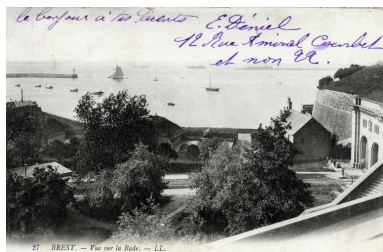 le bonjour à tes parents
E. Déniel
12 Rue Amiral Courbet
et non 22.
27 BREST. - Vue sur la Rade. - LL.